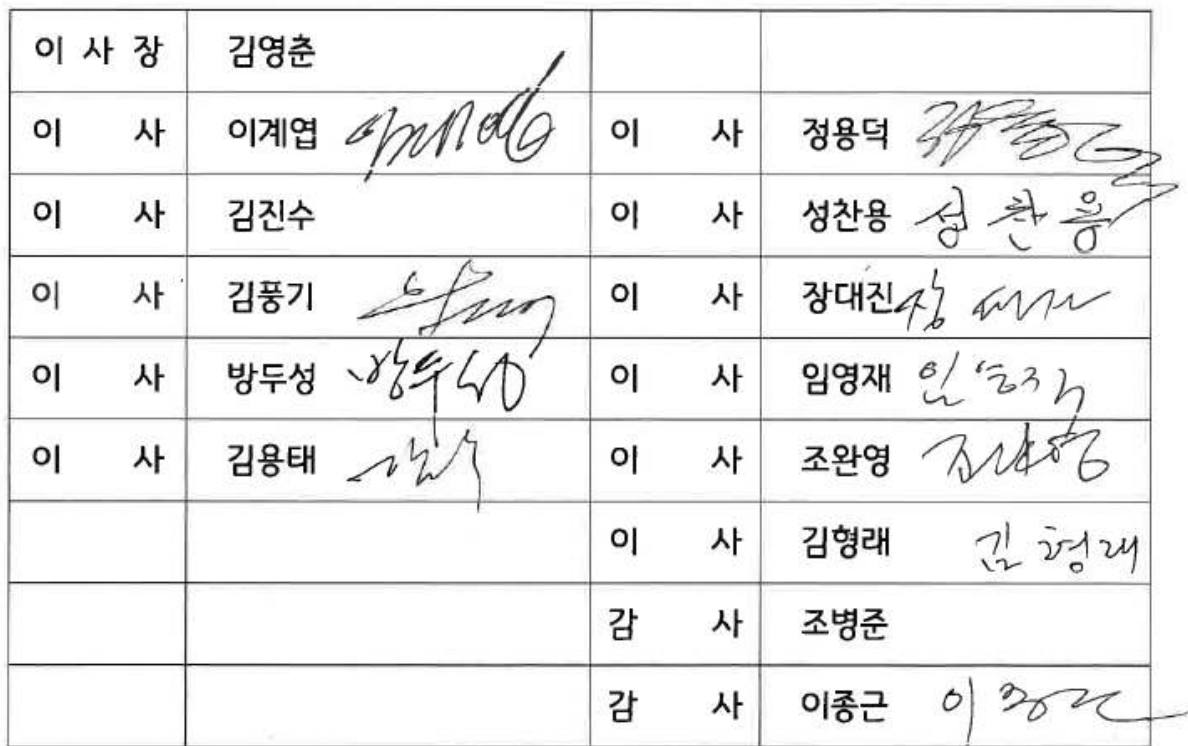 이 사 장 김영춘
이 사 이계엽 이 사 정용덕
이 사 김진수 이 사 성찬용 성찬용
이 사 김풍기 이 사 장대진
이 사 방두성 방두성 이 사 임영재
이 사 김용태 이 사 조완영
이 사 김형래 김형래
감 사 조병준
감 사 이종근 이종근